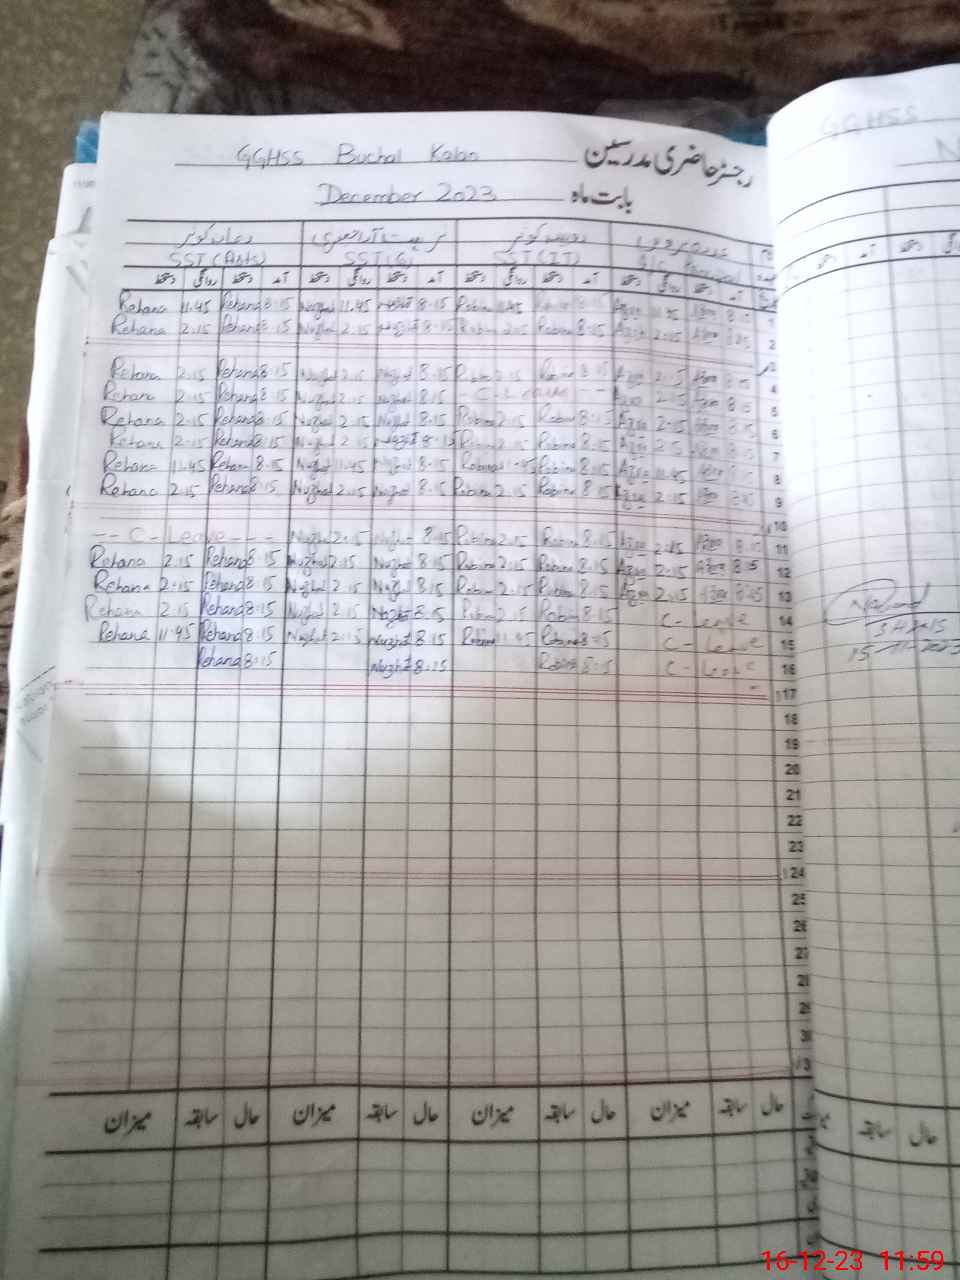 GGHSS Buchal Kalan رجسٹر حاضری مدرسین
December 2023 بابت ماہ
SST (Arts) SST (G) SST (IT)
دستخط روانگی دستخط آمد دستخط روانگی دستخط آمد دستخط روانگی دستخط آمد دستخط روانگی دستخط آمد
Rehana 11.45 Rehana 8.15 Nuzhat 11.45 Nuzhat 8.15 Robina 11.45 Robina 8.15 Azra 11.45 Azra 8.15 1
Rehana 2.15 Rehana 8.15 Nuzhat 2.15 Nuzhat 8.15 Robina 2.15 Robina 8.15 Azra 2.15 Azra 8.15 2
3
Rehana 2.15 Rehana 8.15 Nuzhat 2.15 Nuzhat 8.15 Robina 2.15 Robina 8.15 Azra 2.15 Azra 8.15 4
Rehana 2.15 Rehana 8.15 Nuzhat 2.15 Nuzhat 8.15 - C - Leave - - Azra 2.15 Azra 8.15 5
Rehana 2.15 Rehana 8.15 Nuzhat 2.15 Nuzhat 8.15 Robina 2.15 Robina 8.15 Azra 2.15 Azra 8.15 6
Rehana 2.15 Rehana 8.15 Nuzhat 2.15 Nuzhat 8.15 Robina 2.15 Robina 8.15 Azra 2.15 Azra 8.15 7
Rehana 11.45 Rehana 8.15 Nuzhat 11.45 Nuzhat 8.15 Robina 11.45 Robina 8.15 Azra 11.45 Azra 8.15 8
Rehana 2.15 Rehana 8.15 Nuzhat 2.15 Nuzhat 8.15 Robina 2.15 Robina 8.15 Azra 2.15 Azra 8.15 9
10
-- C - Leave - - - Nuzhat 2.15 Nuzhat 8.15 Robina 2.15 Robina 8.15 Azra 2.15 Azra 8.15 11
Rehana 2.15 Rehana 8.15 Nuzhat 2.15 Nuzhat 8.15 Robina 2.15 Robina 8.15 Azra 2.15 Azra 8.15 12
Rehana 2.15 Rehana 8.15 Nuzhat 2.15 Nuzhat 8.15 Robina 2.15 Robina 8.15 Azra 2.15 Azra 8.15 13
Rehana 2.15 Rehana 8.15 Nuzhat 2.15 Nuzhat 8.15 Robina 2.15 Robina 8.15 C - Leave 14
Rehana 11.45 Rehana 8.15 Nuzhat 2.15 Nuzhat 8.15 Robina 11.45 Robina 8.15 C - Leave 15
Rehana 8.15 Nuzhat 8.15 Robina 8.15 C - Leave 16
17
18
19
20
21
22
23
24
25
26
27
28
29
30
3
میزان سابقہ حال میزان سابقہ حال میزان سابقہ حال میزان سابقہ حال
GGHSS
سابقہ حال
16-12-23 11:59